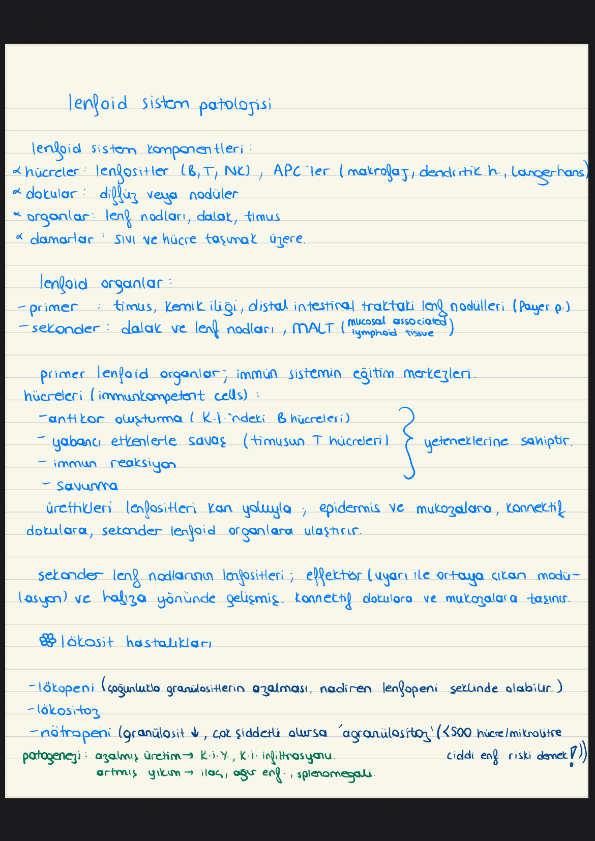 lenfoid sistem patolojisi
lenfoid sistem komponentleri :
∝ hücreler : lenfositler (B, T, NK) , APC'ler (makrofaj, dendritik h., langerhans)
∝ dokular : diffüz veya nodüler
∝ organlar : lenf nodları, dalak, timus
∝ damarlar : sıvı ve hücre taşımak üzere.
lenfoid organlar :
- primer : timus, kemik iliği, distal intestinal traktaki lenf nodülleri (Payer p.)
- sekonder : dalak ve lenf nodları , MALT (mucosal associated lymphoid tissue)
primer lenfoid organlar ; immün sistemin eğitim merkezleri.
hücreleri (immunkompetent cells) :
- antikor oluşturma ( K.i.'ndeki B hücreleri)
- yabancı etkenlerle savaş (timusun T hücreleri) } yeteneklerine sahiptir.
- immun reaksiyon
- savunma
ürettikleri lenfositleri kan yoluyla ; epidermis ve mukozalara, konnektif
dokulara, sekonder lenfoid organlara ulaştırır.
sekonder lenf nodlarının lenfositleri ; effektör (uyarı ile ortaya çıkan modü-
lasyon) ve hafıza yönünde gelişmiş. konnektif dokulara ve mukozalara taşınır.
lökosit hastalıkları
- lökopeni (çoğunlukla granülositlerin azalması, nadiren lenfopeni şeklinde olabilir.)
- lökositoz
- nötropeni (granülosit ↓ , çok şiddetli olursa 'agranülositoz' (<500 hücre/mikrolitre
ciddi enf riski demek!))
patogenezi : azalmış üretim → K.i.Y., K.i. infiltrasyonu.
artmış yıkım → ilaç, ağır enf., splenomegali.